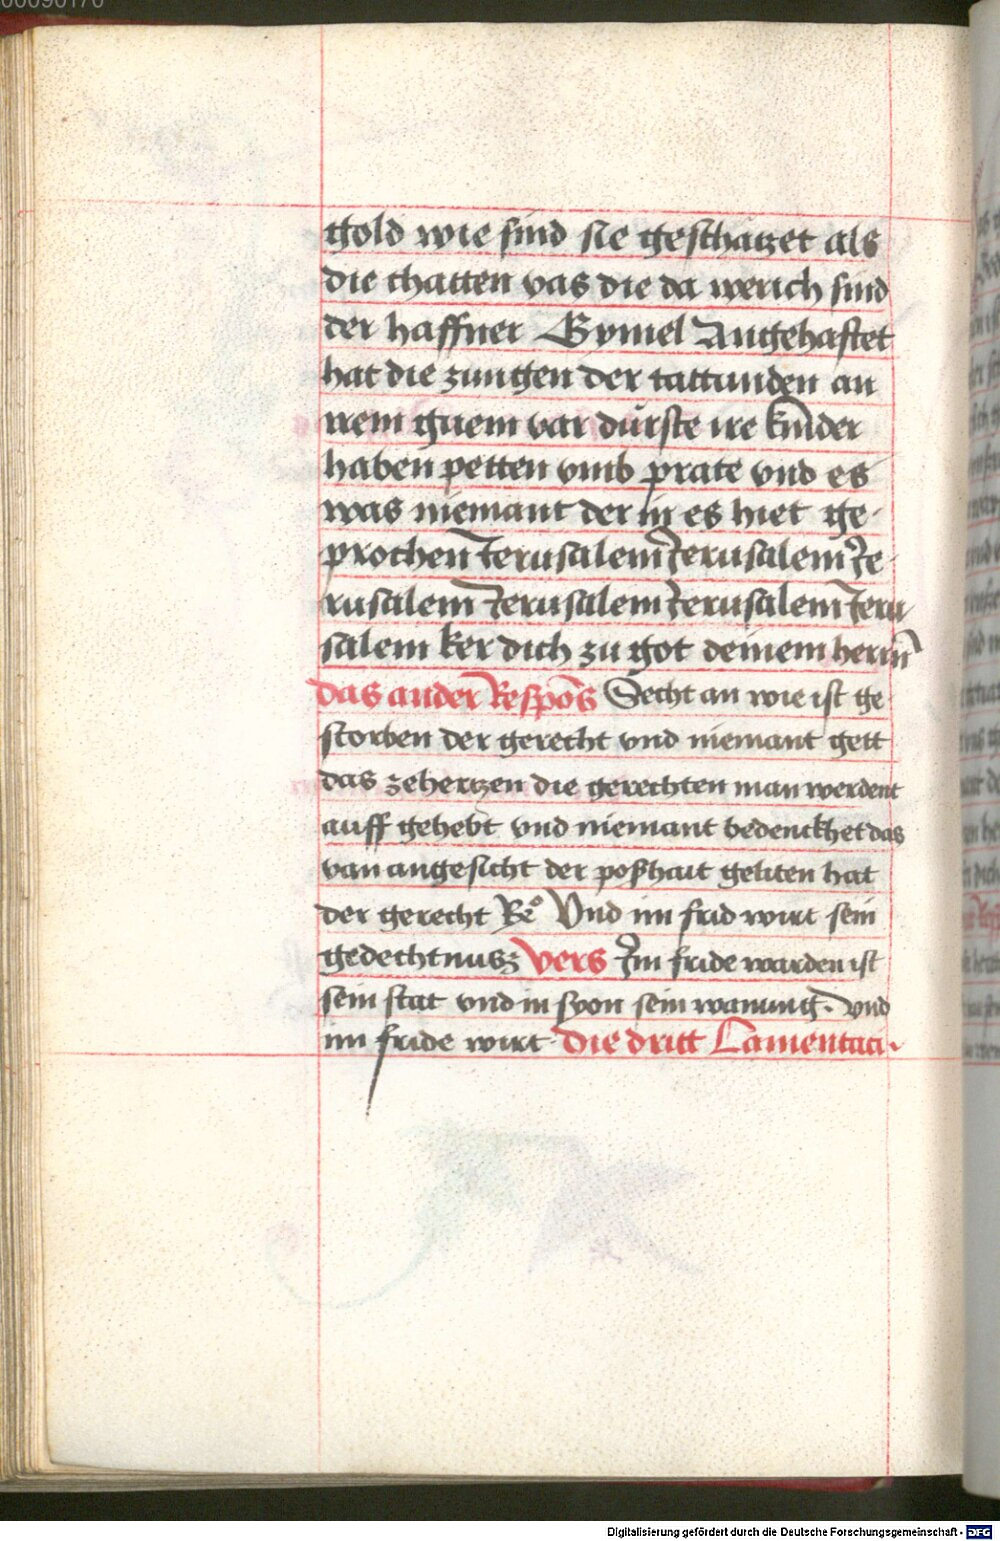 00090170
gold wie sind sie geschätzet als
die chatten vas die da werich sind
der haffner Gymel Angehafftet
hat die zungen der tattunden an
irem guem var durste ire kinder
haben petten vmb prate vnd es
was niemant der in es hiet ge-
prochen Jerusalem Jerusalem Je-
rusalem Jerusalem Jerusalem Jeru
salem ker dich zu got deinem herrn
das ander Respons Secht an wie ist ge
storben der gerecht vnd niemant gett
das zehertzen die gerechten man werdent
auff gehebt vnd niemant bedenckhet das
van angesicht der poshait geliten hat
der gerecht Re° Vnd im frid wirt sein
gedechtnusz vers Im fride warden ist
sein stat vnd in syon sein wanung. Vnd
im fride wirt die dritt Lamentaci.
Digitalisierung gefördert durch die Deutsche Forschungsgemeinschaft - DFG